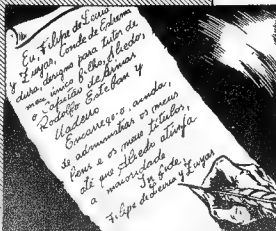 Eu, Filipe de Leurus
y Zuyas, Conde de Estrema
dura, designo para tutor de
meu único filho, Alfredo,
o Capitão de Armas
Rodolfo Esteban y
Encarrego-o, ainda,
de administrar os meus
bens e os meus títulos,
até que Alfredo atinja
a maioridade
Filipe de Leurus y Zuyas